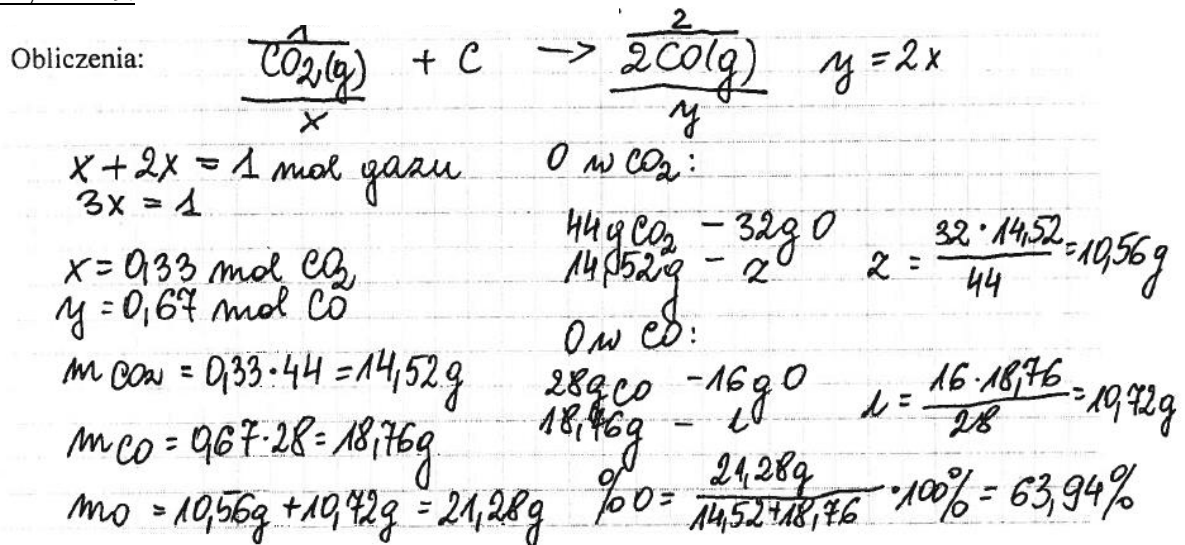 Obliczenia:
1 2
CO2(g) + C → 2CO(g) y = 2x
x y
x + 2x = 1 mol gazu
3x = 1
x = 0,33 mol CO2
y = 0,67 mol CO
mCO2 = 0,33·44 = 14,52g
mCO = 0,67·28 = 18,76g
mO = 10,56g + 10,72g = 21,28g
O w CO2:
44gCO2 – 32g O
14,52g – z z = 32·14,52/44 = 10,56g
O w CO:
28gCO – 16g O
18,76g – l l = 16·18,76/28 = 10,72g
%O = 21,28g/14,52+18,76 ·100% = 63,94%